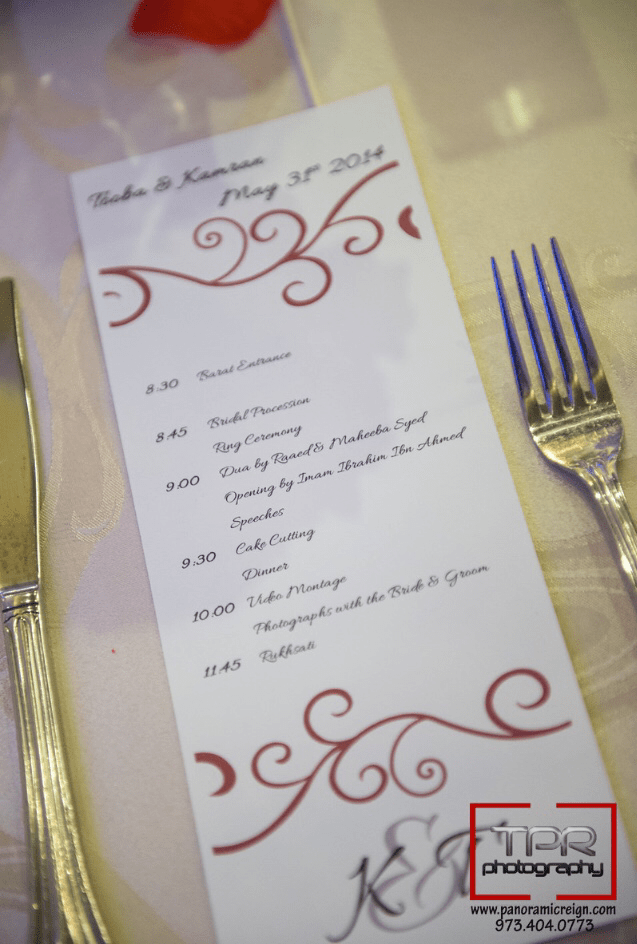 Thoba & Kamran
May 31st 2014
8:30 Barat Entrance
8:45 Bridal Procession
Ring Ceremony
9:00 Dua by Raaed & Maheeba Syed
Opening by Imam Ibrahim Ibn Ahmed
Speeches
9:30 Cake Cutting
Dinner
10:00 Video Montage
Photographs with the Bride & Groom
11:45 Rukhsati
K & T
TPR
photography
www.panoramicreign.com
973.404.0773